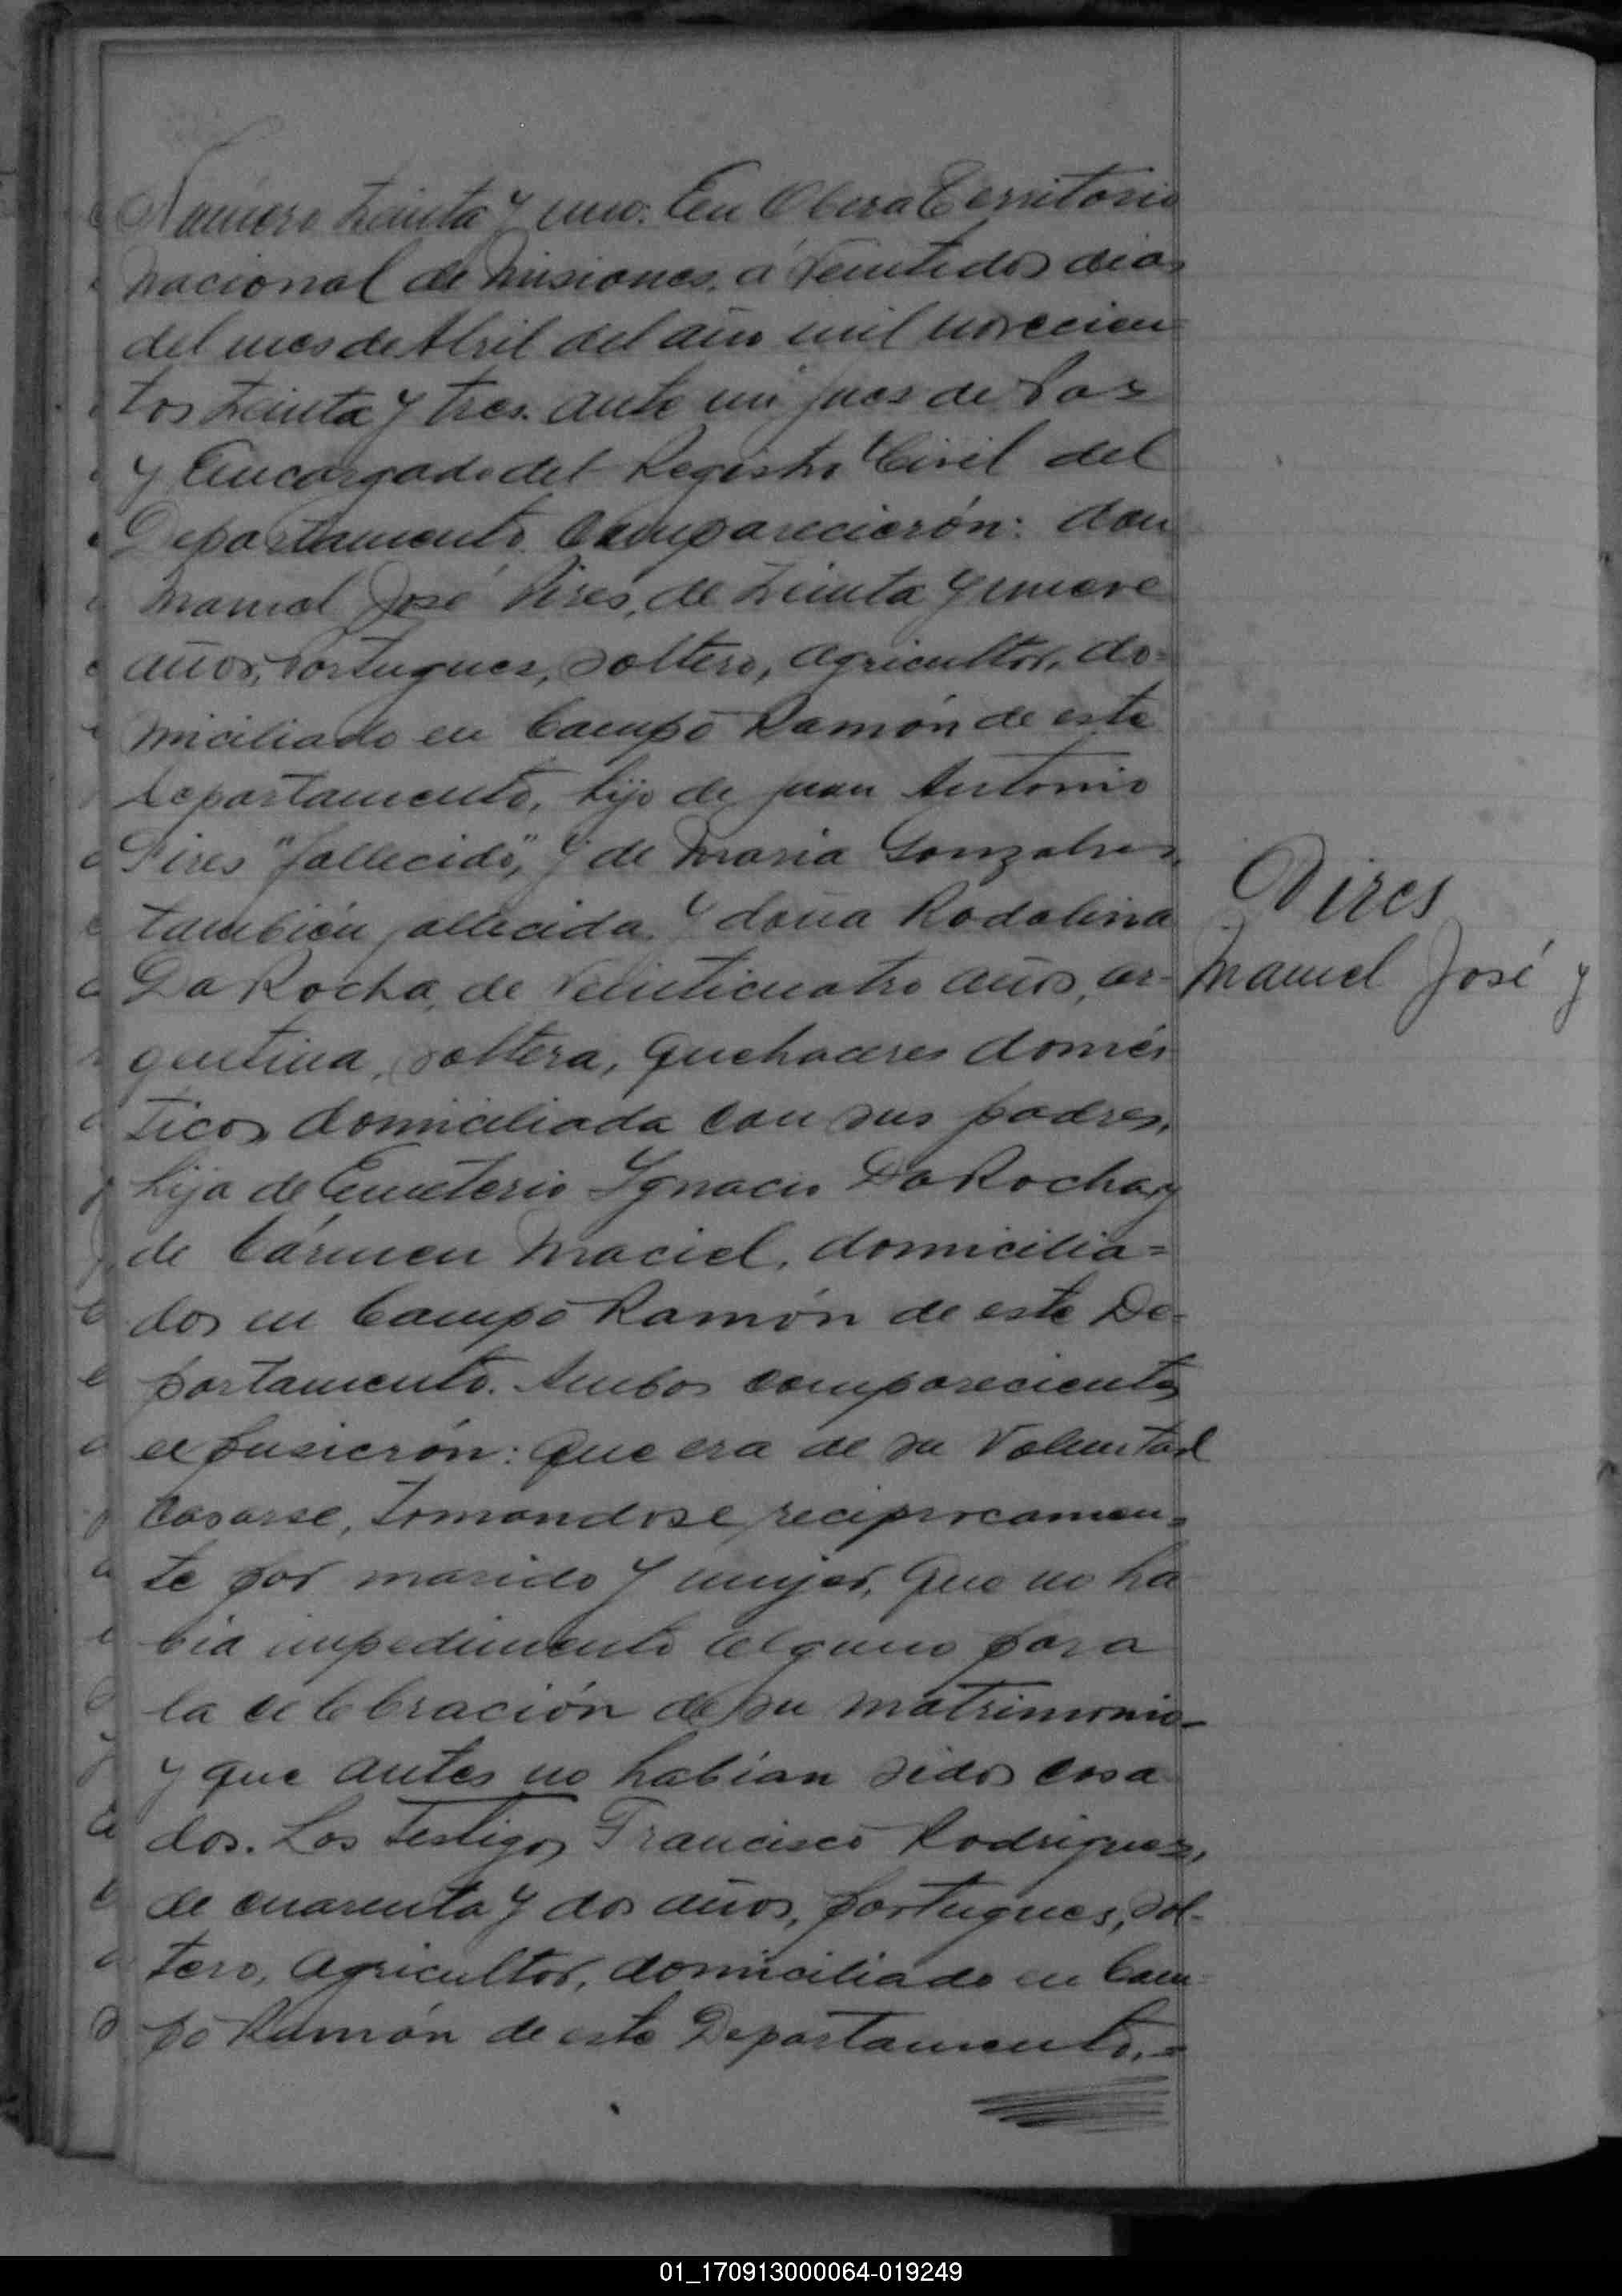 Número treinta y uno. En Oberá Territorio
nacional de Misiones, á veintidos dias
del mes de Abril del año mil novecien=
tos treinta y tres. ante mi Juez de Paz
y Encargado del Registro Civil del
Departamento. Comparecierón: don
Manuel José Pires, de treinta y nueve
años, Portugues, soltero, agricultor, do=
miciliado en Campo Ramón de este
departamento, hijo de Juan Antonio
Pires "fallecido", y de Maria Gonzalves,
también fallecida. Y doña Rodolina
Da Rocha, de veinticuatro años, ar-
gentina, soltera, quehaceres domés
ticos domiciliada con sus padres,
hija de Emeterio Ygnacio Da Rocha y
de Cármen Maciel, domicilia=
dos en Campo Ramón de este De=
partamento. Ambos comparecientes
expusierón: Que era de su voluntad
casarse, tomandose reciprocamen=
te por marido y mujer, que no ha
bia impedimento alguno para
la celebración de su matrimonio
y que antes no habían sidos casa
dos. Los testigos Francisco Rodriguez,
de cuarenta y dos años, portugues, sol-
tero, agricultor, domiciliado en Cam=
po Ramón de este Departamento.=
Pires
Manuel José y
01_170913000064-019249